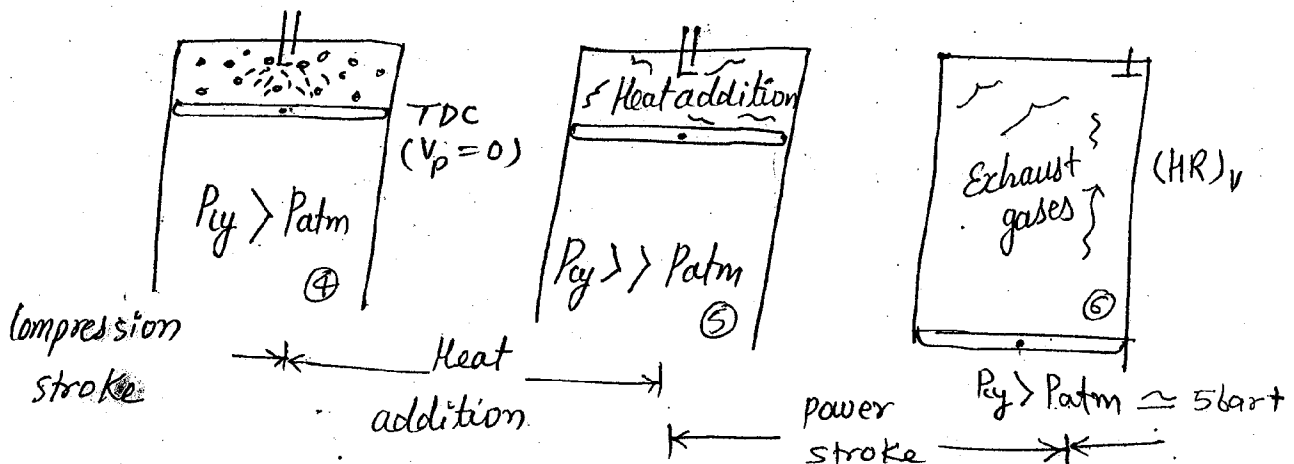 TDC
(Vp = 0)
Pcy > Patm
④
Heat addition
Pcy >> Patm
⑤
Exhaust
gases
(HR)v
⑥
Compression
stroke
Heat
addition
Pcy > Patm ≃ 5bar
power
stroke